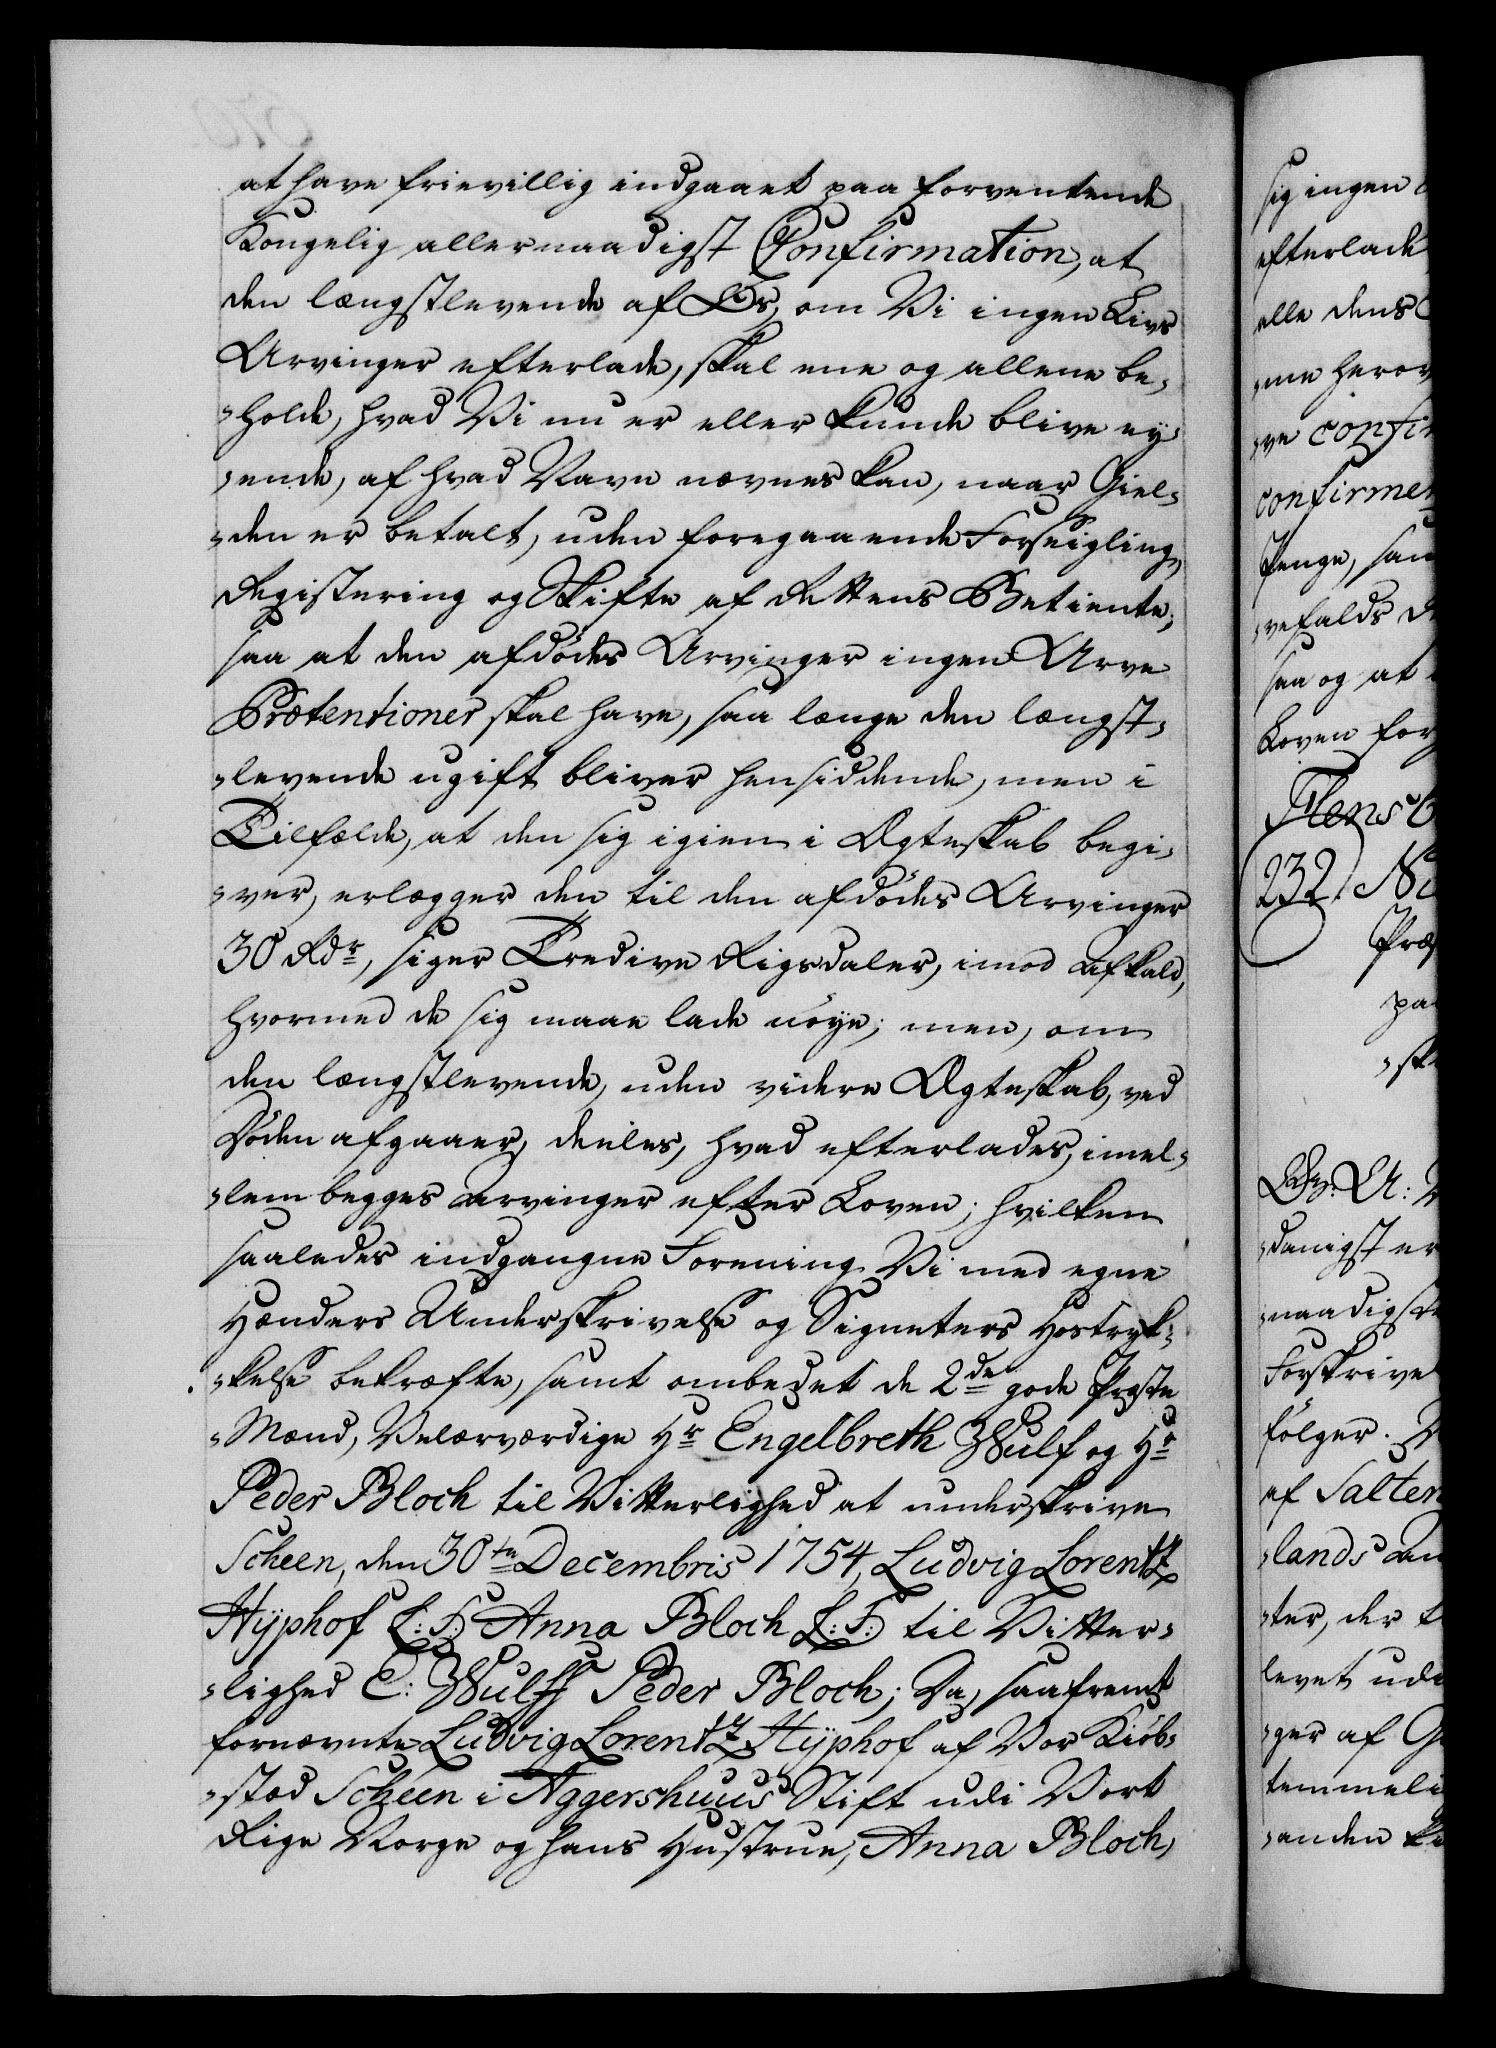 at have frievillig indgaaet paa forventende
Kongelig allernaadigst Confirmation, at
den længstlevende af Os, om Vi ingen Livs
Arvinger efterlade, skal ene og allene be-
-holde, hvad Vi nu er eller kunde blive ey-
-ende, af hvad Navn nævnes kan, naar Giel-
-den er betalt, uden foregaaende Forseigling,
Registering og Skifte af Rettens Betiente;
saa at den afdødes Arvinger ingen Arve
Prætentioner skal have, saa længe den længst-
-levende ugift bliver hensiddende, men i
Tilfælde, at den sig igien i Ægteskab begi-
-ver, erlægger den til den afdødes Arvinger
30 Rdr, siger Tredive Rigsdaler, imod Afkald,
hvormed de sig maae lade nøye; men, om
den længstlevende, uden videre Ægteskab, ved
Døden afgaaer, deeles, hvad efterlades, imel-
-lem begges Arvinger efter Loven; hvilken
saaledes indgangne Forening Vi med egne
Hænders Underskrivelse og Signeters Hostryk-
-kelse bekræfte, samt ombedet de 2de gode Præste
-Mænd, Velærværdige Hr Engelbreth Wulf og Hr
Peder Bloch til Vitterlighed at underskrive
Scheen, den 30te Decembris 1754, Ludvig Lorentz
Hÿphof L: S: Anna Bloch L: S: til Vitter-
-lighed E: Wulff Peder Bloch; Da, saafremt
fornævnte Ludvig Lorentz Hÿphof af Vor Kiøb-
-stæd Scheen i Aggershuus Stift udi Vort
Rige Norge og hans Hustrue, Anna Bloch,
sig ingen
efterlade
elle dens
-me herov
-ve confir
confirmer
Penge, sam
-vefalds
saa og at
Loven for
Flensb
232. Ni
Præ
paa
-ske
Gr: A:
-danigst er
-naadigste
Forskrive
følger.
af Salten
-lands Am
-ter, der
levet udi
-ger af G
temmeli
-anden